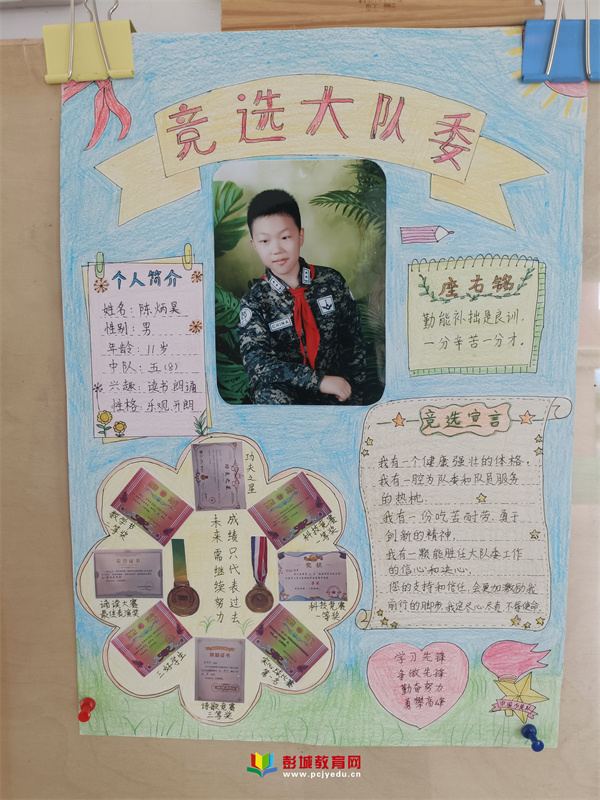 竞选大队委
个人简介
姓名：陈炳昊
性别：男
年龄：11岁
中队：五（8）
兴趣：读书 朗诵
性格：乐观 开朗
座右铭
勤能补拙是良训，
一分辛苦一分才。
竞选宣言
我有一个健康强壮的体格，
我有一腔为队委和队员服务
的热忱，
我有一份吃苦耐劳、勇于
创新的精神，
我有一颗能胜任大队委工作
的信心和决心。
您的支持和信任，会更加激励我
前行的脚步，我定尽心尽责，不辱使命。
功夫之星
科技竞赛
一等奖
数学节
二等奖
成绩只代表过去
未来需继续努力
诵读大赛
最佳表演奖
奖状
科技竞赛
一等奖
三好学生
诗歌竞赛
三等奖
第一名
学习先锋
争做先锋
勤奋努力
勇攀高峰
中国少先队
彭城教育网
www.pcjyedu.cn